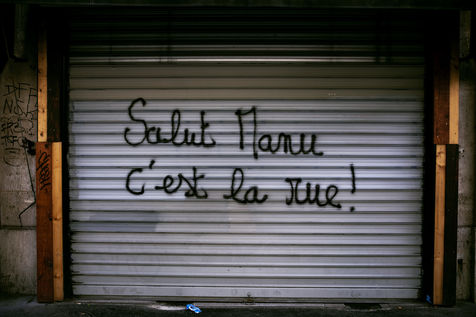 Salut Manu
c'est la rue!